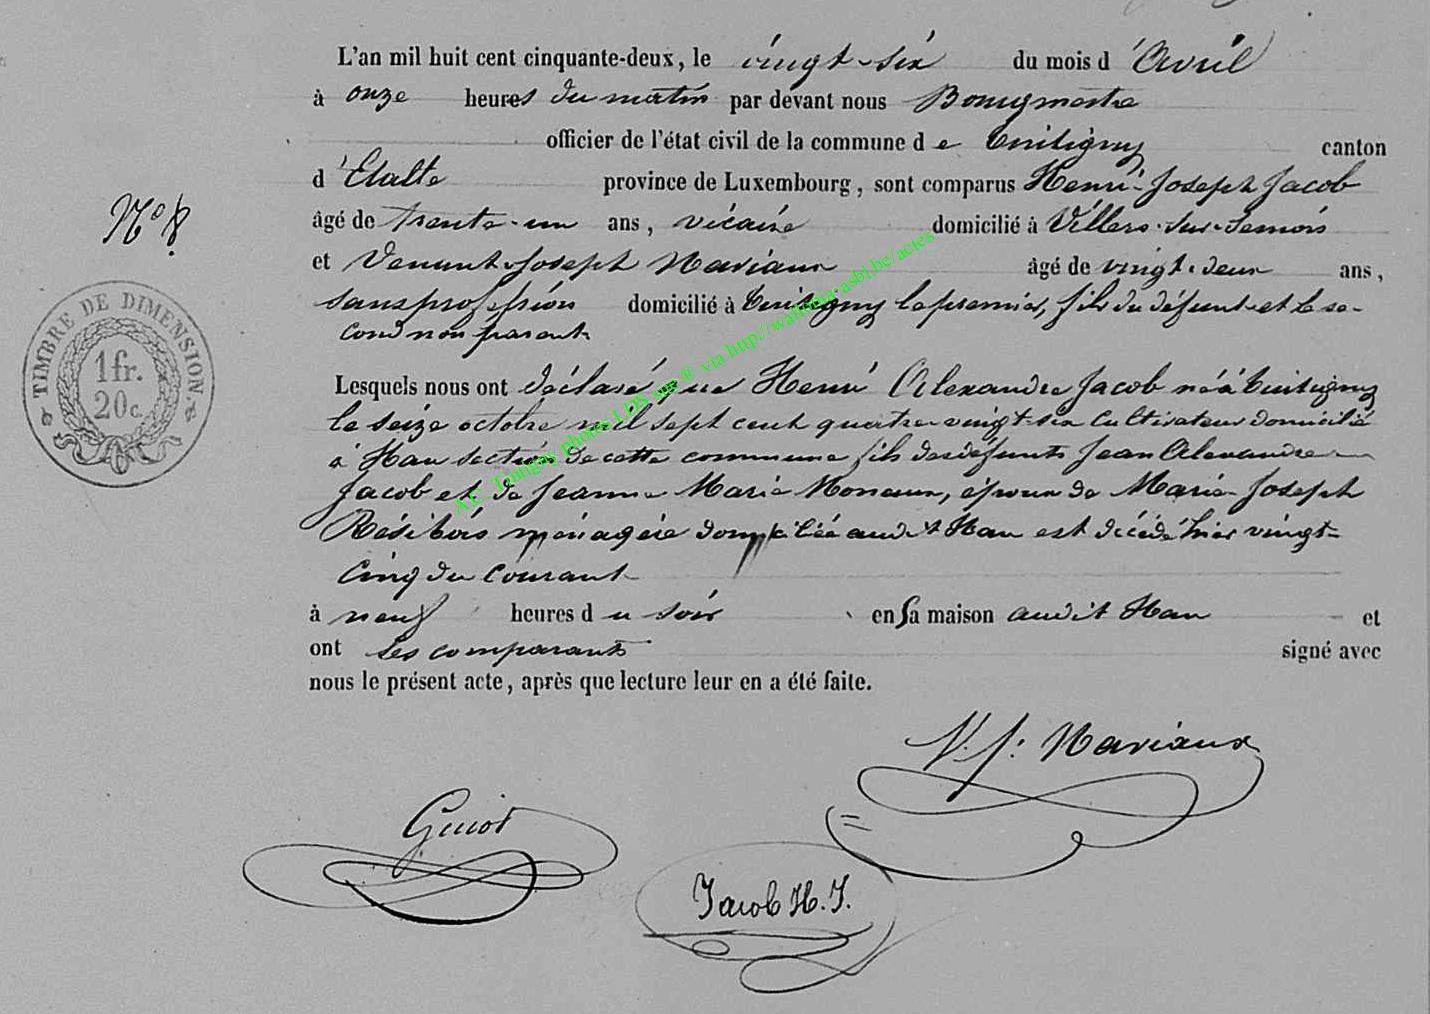 L'an mil huit cent cinquante-deux, le vingt-six du mois d'Avril
à onze heures du matin par devant nous Bourgmestre
officier de l'état civil de la commune de Tintigny canton
d'Etalle province de Luxembourg, sont comparus Henri-Joseph Jacob
âgé de trente-un ans, vicaire domicilié à Villers-sur-Semois
N° 8
et Venant-Joseph Mariaux âgé de vingt-deux ans,
sans profession domicilié à Tintigny le premier, fils du défunt et le se-
cond non parent
TIMBRE DE DIMENSION.
1fr.
20c.
Lesquels nous ont déclaré que Henri Alexandre Jacob né à Tintigny
le seize octobre mil sept cent quatre-vingt-six cultivateur domicilié
à Han section de cette commune fils des défunts Jean Alexandre
Jacob et de Jeanne Marie Moneaux, époux de Marie-Joseph
Résibois ménagère domiciliée audit Han est décédé hier vingt-
cinq du courant
à neuf heures du soir en sa maison audit Han et
ont les comparants signé avec
nous le présent acte, après que lecture leur en a été faite.
V. J. Mariaux
Guiot
Jacob H. J.
A.E. Tintigny photos LDS sur ® via http://wallonia-asbl.be/actes